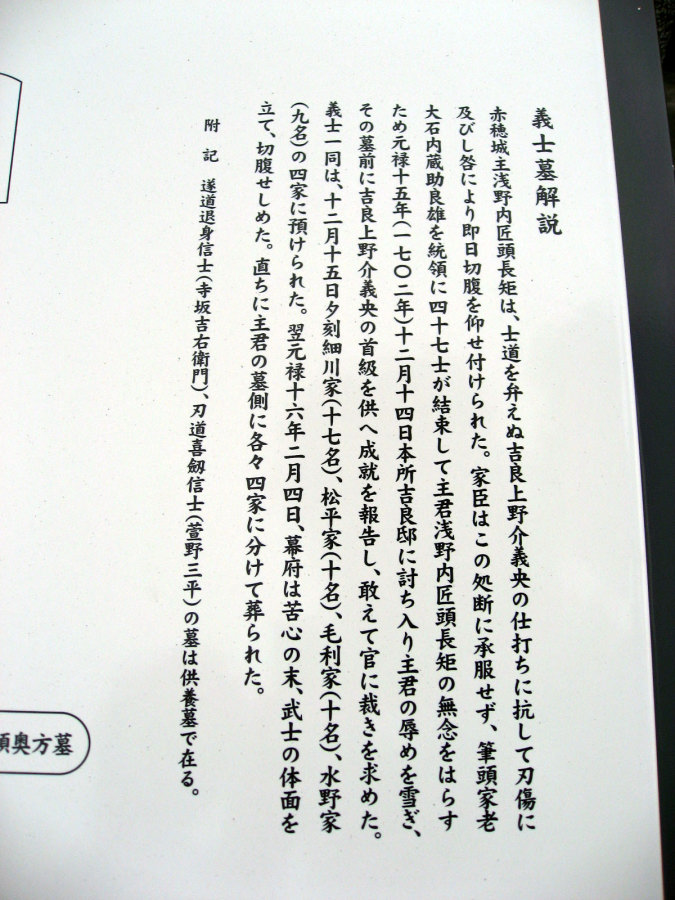 義士墓解説
赤穂城主浅野内匠頭長矩は、士道を弁えぬ吉良上野介義央の仕打ちに抗して刃傷に
及びし咎により即日切腹を仰せ付けられた。家臣はこの処断に承服せず、筆頭家老
大石内蔵助良雄を統領に四十七士が結束して主君浅野内匠頭長矩の無念をはらす
ため元禄十五年(一七〇二年)十二月十四日本所吉良邸に討ち入り主君の辱めを雪ぎ、
その墓前に吉良上野介義央の首級を供へ成就を報告し、敢えて官に裁きを求めた。
義士一同は、十二月十五日夕刻細川家(十七名)、松平家(十名)、毛利家(十名)、水野家
(九名)の四家に預けられた。翌元禄十六年二月四日、幕府は苦心の末、武士の体面を
立て、切腹せしめた。直ちに主君の墓側に各々四家に分けて葬られた。
附記 遂道退身信士(寺坂吉右衛門)、刃道喜劔信士(萱野三平)の墓は供養墓で在る。
頭奥方墓